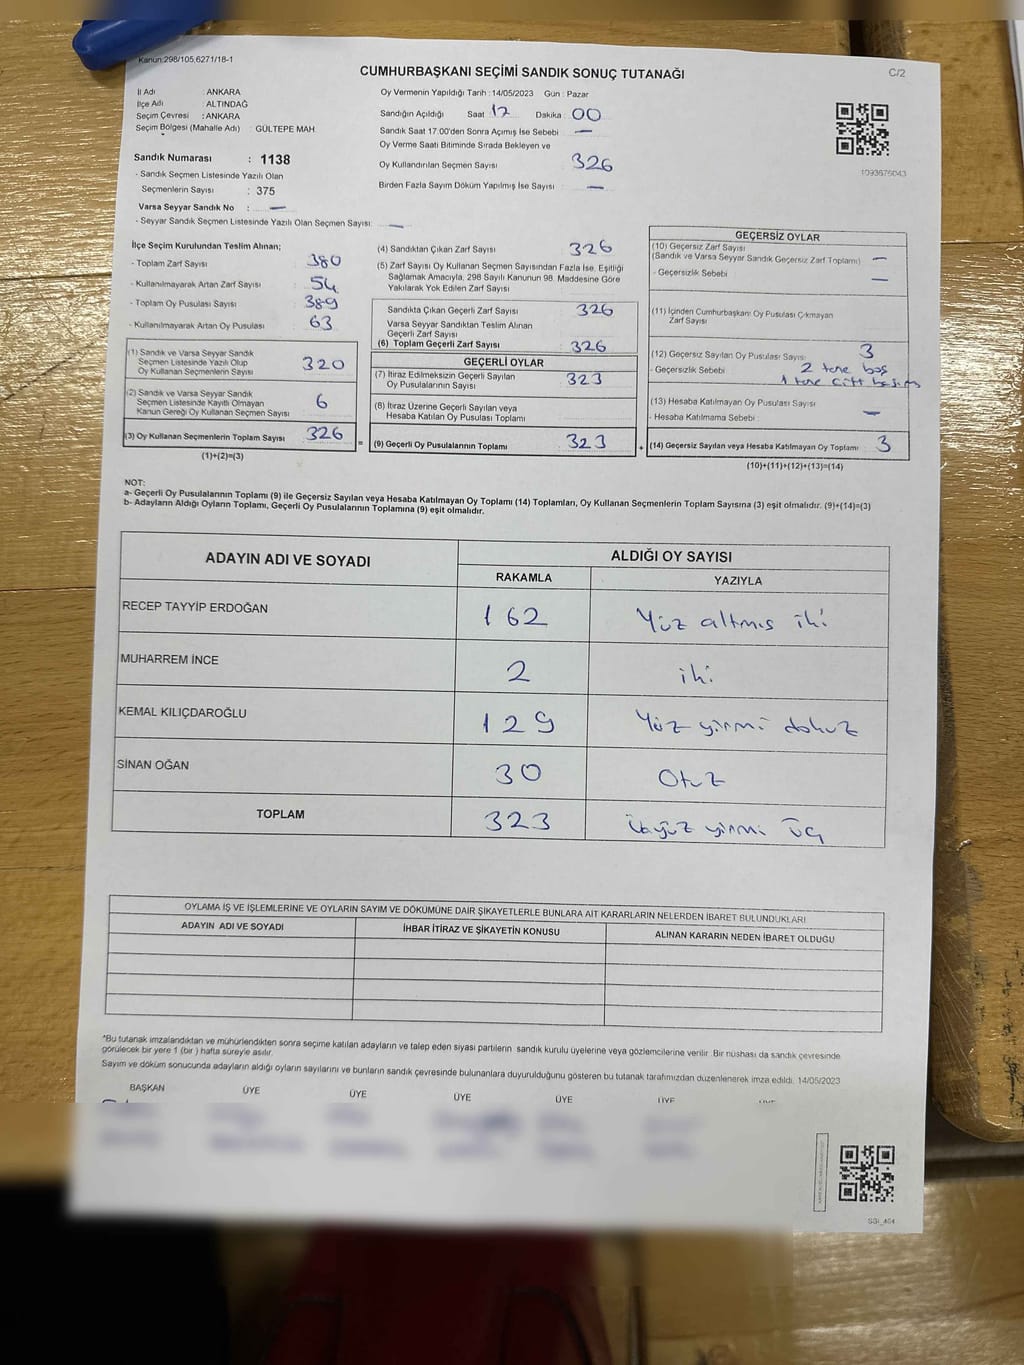 Kanun:298/105,6271/18-1
CUMHURBAŞKANI SEÇİMİ SANDIK SONUÇ TUTANAĞI
C/2
İl Adı : ANKARA
İlçe Adı : ALTINDAĞ
Seçim Çevresi : ANKARA
Seçim Bölgesi (Mahalle Adı) : GÜLTEPE MAH.
Sandık Numarası : 1138
- Sandık Seçmen Listesinde Yazılı Olan
Seçmenlerin Sayısı : 375
Varsa Seyyar Sandık No : —
- Seyyar Sandık Seçmen Listesinde Yazılı Olan Seçmen Sayısı: —
Oy Vermenin Yapıldığı Tarih : 14/05/2023 Gün : Pazar
Sandığın Açıldığı Saat 17 Dakika : 00
Sandık Saat 17.00'den Sonra Açımış İse Sebebi : —
Oy Verme Saati Bitiminde Sırada Bekleyen ve
Oy Kullandırılan Seçmen Sayısı : 326
Birden Fazla Sayım Döküm Yapılmış İse Sayısı : —
1093675043
İlçe Seçim Kurulundan Teslim Alınan;
- Toplam Zarf Sayısı : 380
- Kullanılmayarak Artan Zarf Sayısı : 54
- Toplam Oy Pusulası Sayısı : 389
- Kullanılmayarak Artan Oy Pusulası : 63
(1) Sandık ve Varsa Seyyar Sandık
Seçmen Listesinde Yazılı Olup
Oy Kullanan Seçmenlerin Sayısı : 320
(2) Sandık ve Varsa Seyyar Sandık
Seçmen Listesinde Kayıtlı Olmayan
Kanun Gereği Oy Kullanan Seçmen Sayısı : 6
(3) Oy Kullanan Seçmenlerin Toplam Sayısı : 326
(1)+(2)=(3)
=
(4) Sandıktan Çıkan Zarf Sayısı : 326
(5) Zarf Sayısı Oy Kullanan Seçmen Sayısından Fazla İse, Eşitliği
Sağlamak Amacıyla, 298 Sayılı Kanunun 98. Maddesine Göre
Yakılarak Yok Edilen Zarf Sayısı :
Sandıkta Çıkan Geçerli Zarf Sayısı : 326
Varsa Seyyar Sandıktan Teslim Alınan
Geçerli Zarf Sayısı :
(6) Toplam Geçerli Zarf Sayısı : 326
GEÇERLİ OYLAR
(7) İtiraz Edilmeksizin Geçerli Sayılan
Oy Pusulalarının Sayısı : 323
(8) İtiraz Üzerine Geçerli Sayılan veya
Hesaba Katılan Oy Pusulası Toplamı :
(9) Geçerli Oy Pusulalarının Toplamı : 323
+
GEÇERSİZ OYLAR
(10) Geçersiz Zarf Sayısı
(Sandık ve Varsa Seyyar Sandık Geçersiz Zarf Toplamı) : —
- Geçersizlik Sebebi : —
(11) İçinden Cumhurbaşkanı Oy Pusulası Çıkmayan
Zarf Sayısı :
(12) Geçersiz Sayılan Oy Pusulası Sayısı : 3
- Geçersizlik Sebebi : 2 tene boş
1 tene çift basım
(13) Hesaba Katılmayan Oy Pusulası Sayısı : —
- Hesaba Katılmama Sebebi :
(14) Geçersiz Sayılan veya Hesaba Katılmayan Oy Toplamı : 3
(10)+(11)+(12)+(13)=(14)
NOT:
a- Geçerli Oy Pusulalarının Toplamı (9) ile Geçersiz Sayılan veya Hesaba Katılmayan Oy Toplamı (14) Toplamları, Oy Kullanan Seçmenlerin Toplam Sayısına (3) eşit olmalıdır. (9)+(14)=(3)
b- Adayların Aldığı Oyların Toplamı, Geçerli Oy Pusulalarının Toplamına (9) eşit olmalıdır.
ADAYIN ADI VE SOYADI
ALDIĞI OY SAYISI
RAKAMLA YAZIYLA
RECEP TAYYİP ERDOĞAN 162 Yüz altmış iki
MUHARREM İNCE 2 iki
KEMAL KILIÇDAROĞLU 129 Yüz yirmi dokuz
SİNAN OĞAN 30 Otuz
TOPLAM 323 üçyüz yirmi üç
OYLAMA İŞ VE İŞLEMLERİNE VE OYLARIN SAYIM VE DÖKÜMÜNE DAİR ŞİKAYETLERLE BUNLARA AİT KARARLARIN NELERDEN İBARET BULUNDUKLARI
ADAYIN ADI VE SOYADI İHBAR İTİRAZ VE ŞİKAYETİN KONUSU ALINAN KARARIN NEDEN İBARET OLDUĞU
*Bu tutanak imzalandıktan ve mühürlendikten sonra seçime katılan adayların ve talep eden siyasi partilerin sandık kurulu üyelerine veya gözlemcilerine verilir. Bir nüshası da sandık çevresinde
görülecek bir yere 1 (bir ) hafta süreyle asılır.
Sayım ve döküm sonucunda adayların aldığı oyların sayılarını ve bunların sandık çevresinde bulunanlara duyurulduğunu gösteren bu tutanak tarafımızdan düzenlenerek imza edildi. 14/05/2023
BAŞKAN ÜYE ÜYE ÜYE ÜYE ÜYE